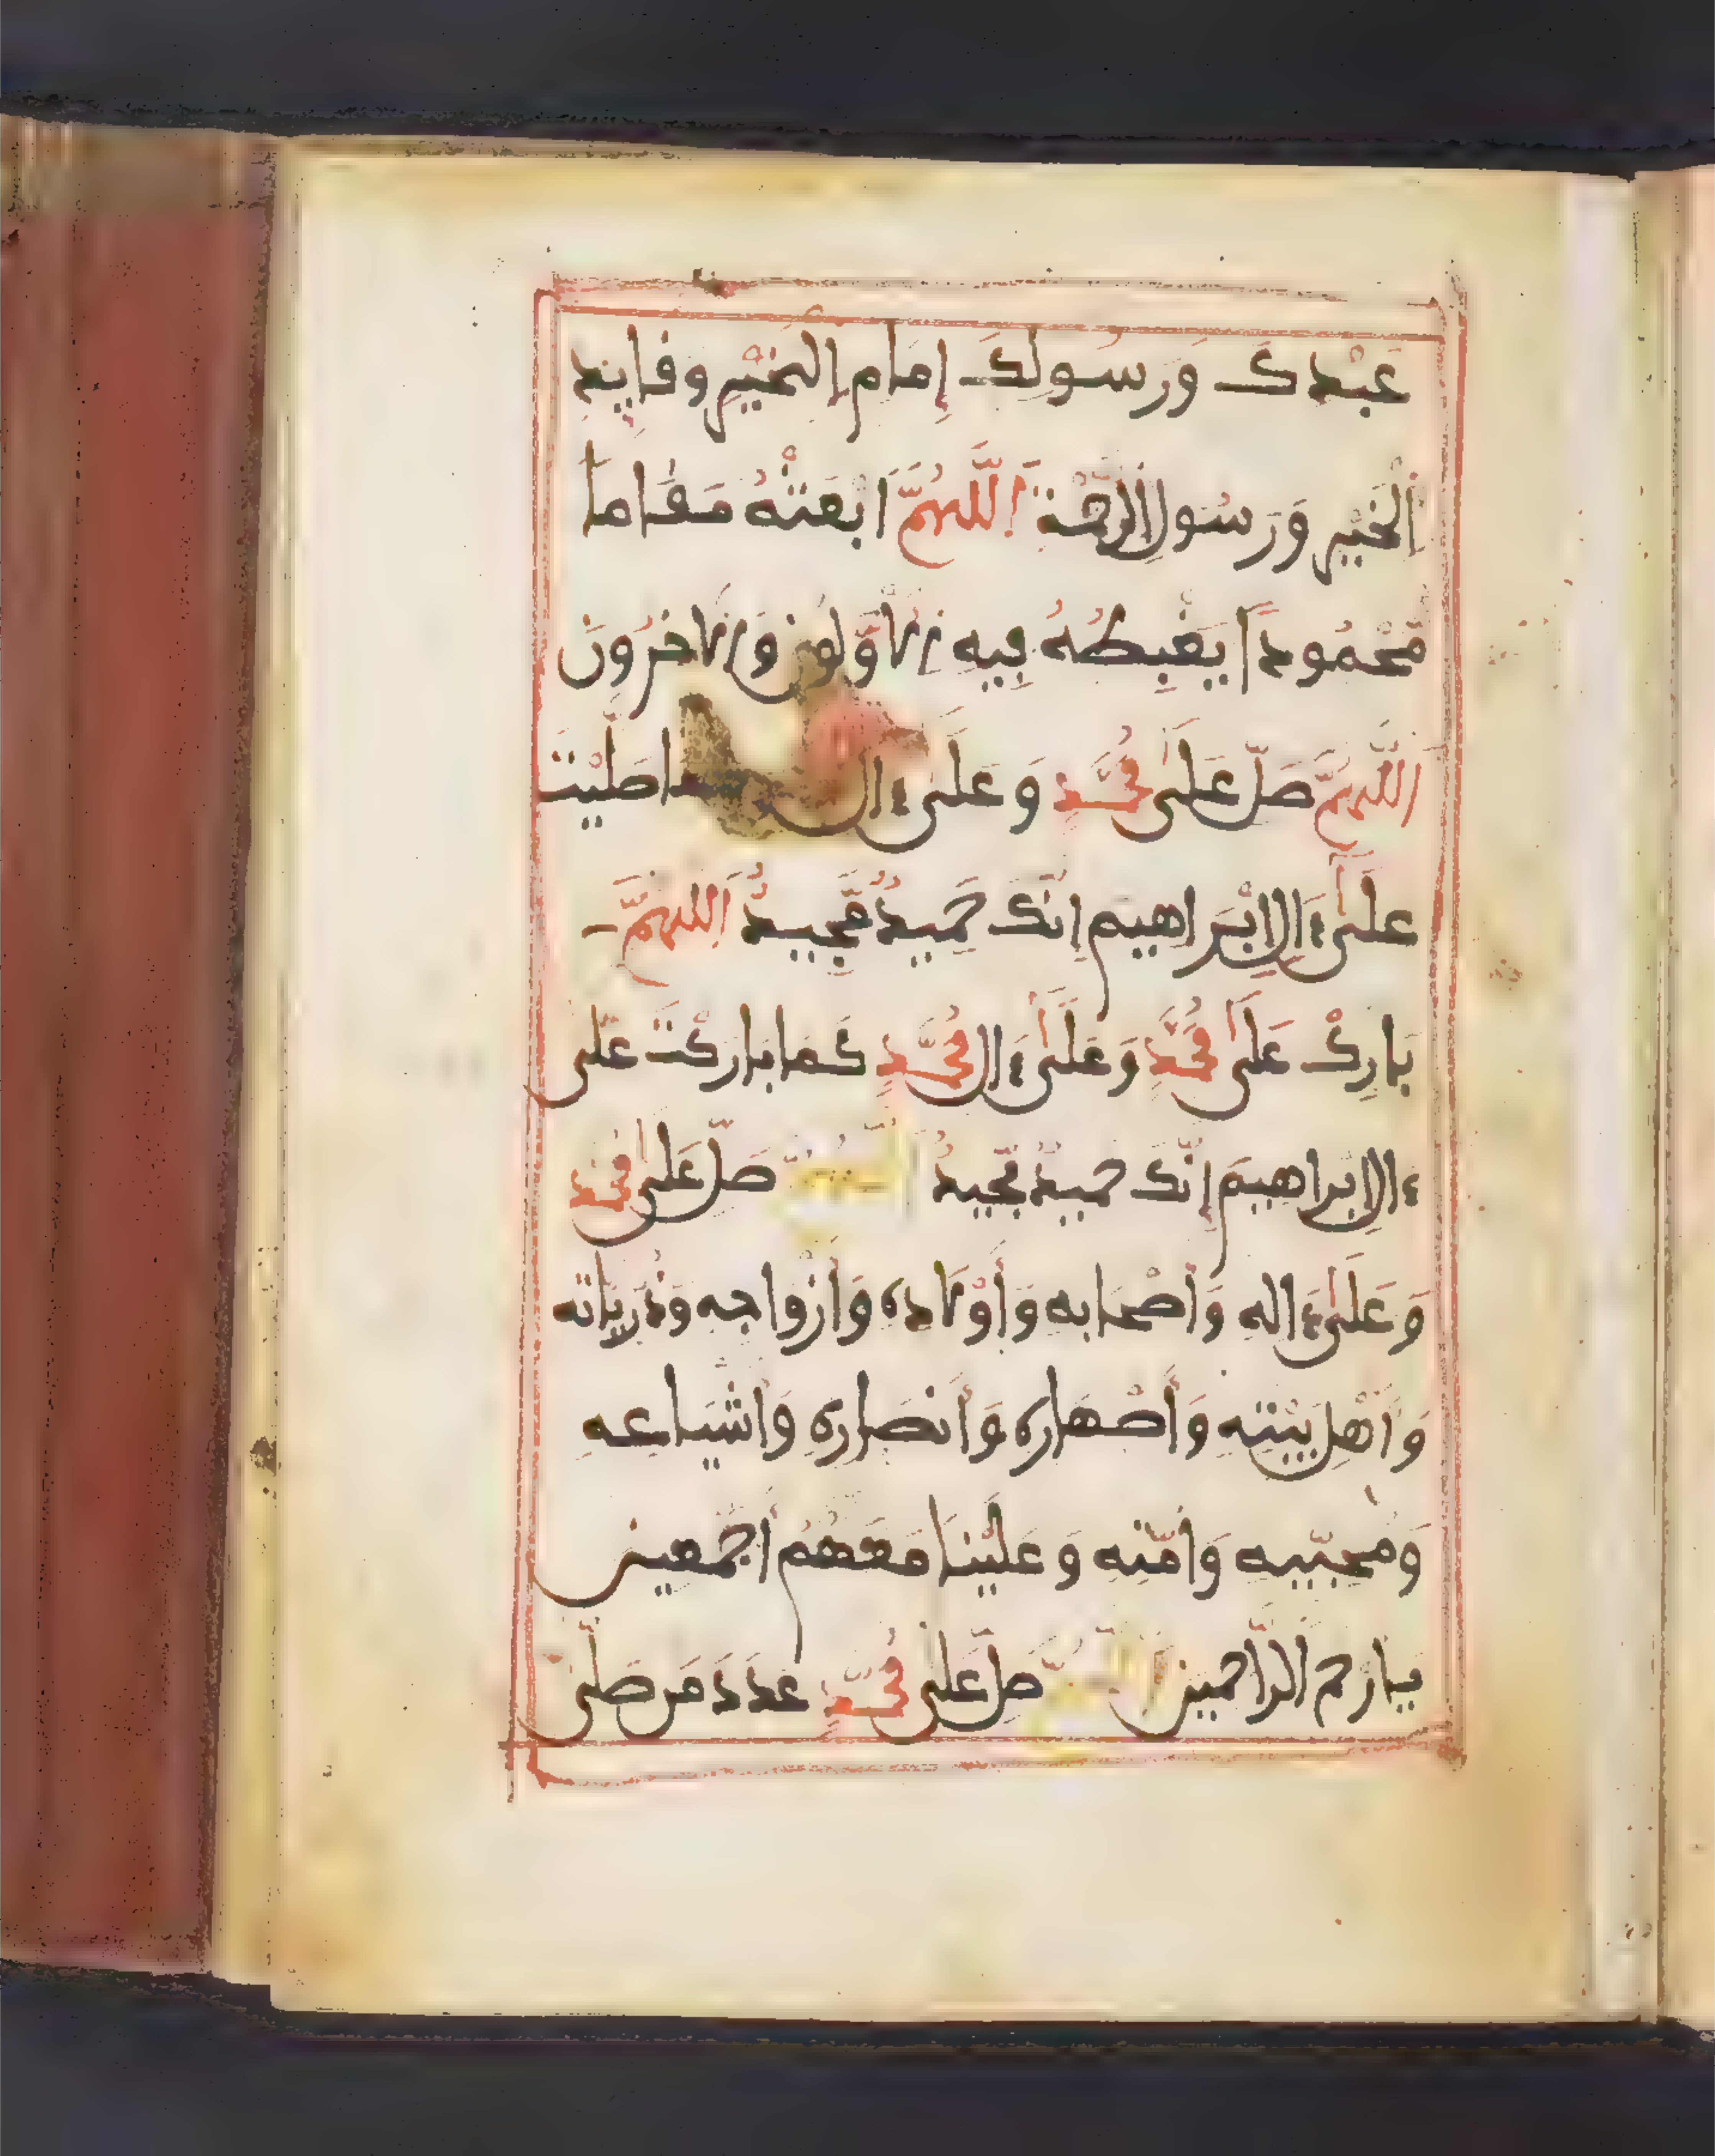 عَبْدِكَ وَرَسُولِكَ إِمَامِ اِلْخَيْرِ وَقَايِدِ
اَلْخَيْرِ وَرَسُولِ اِلرَّحْمَةِ اَللَّهُمَّ اَبْعَثْهُ مَقَاماً
مَّحْمُوداً يَغْبِطُهُ فِيهِ اِلاَوَّلُونَ وَالاَخِرُونَ
اَللَّهُمَّ صَلِّ عَلَى مُحَمَّدٍ وَعَلَى ءَالِ صَلَّيْتَ
عَلَى ءَالِ إِبْرَاهِيمَ إِنَّكَ حَمِيدٌ مَّجِيدٌ اَللَّهُمَّ
بَارِكْ عَلَى مُحَمَّدٍ وَعَلَى ءَالِ مُحَمَّدٍ كَمَا بَارَكْتَ عَلَى
ءَالِ إِبْرَاهِيمَ إِنَّكَ حَمِيدٌ مَّجِيدٌ صَلِّ عَلَى مُحَمَّدٍ
وَعَلَى ءَالِهِ وَأَصْحَابِهِ وَأَوْلاَدِهِ وَأَزْوَاجِهِ وَذُرِّيَّاتِهِ
وَأَهْلِ بَيْتِهِ وَأَصْهَارِهِ وَأَنصَارِهِ وَأَشْيَاعِهِ
وَمُحِبِّيهِ وَأُمَّتِهِ وَعَلَيْنَا مَعَهُمُ أَجْمَعِينَ
يَا أَرْحَمَ اَلرَّاحِمِينَ صَلِّ عَلَى مُحَمَّدٍ عَدَدَ مَن صَلَّى